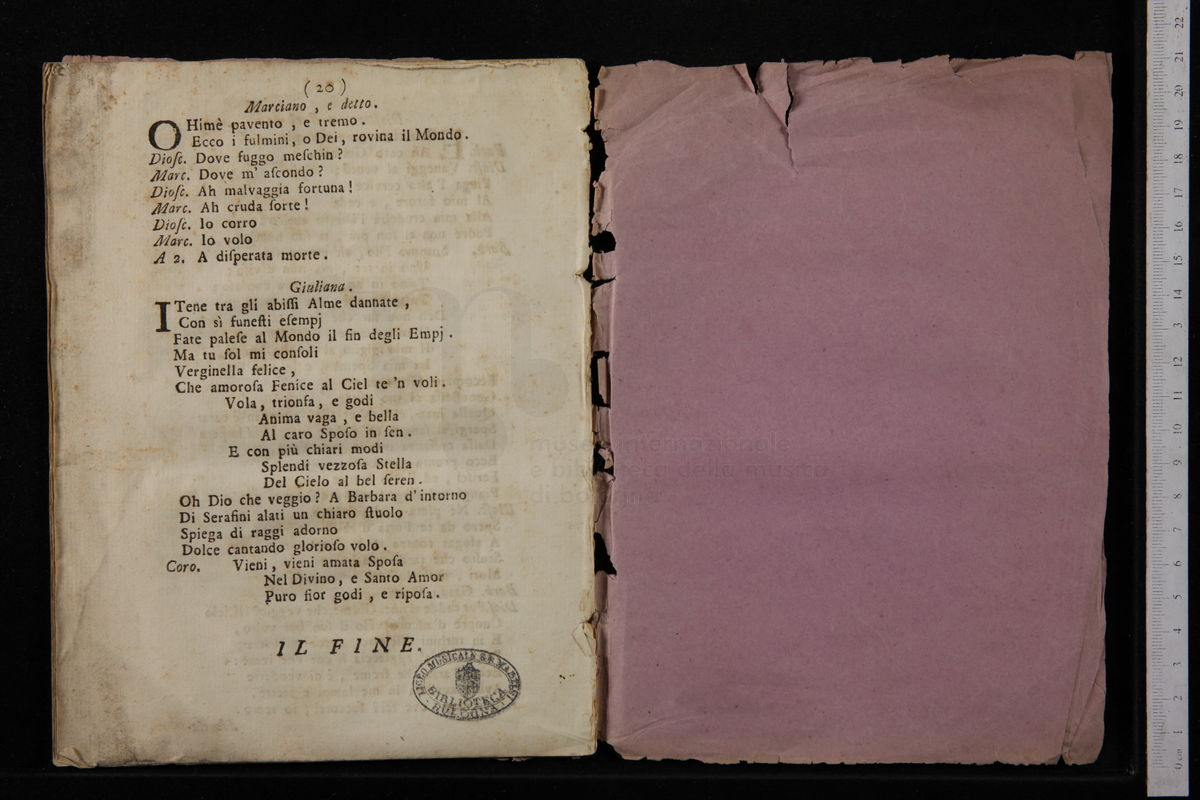 (20)
Marciano, e detto.
OHimè pavento, e tremo.
Ecco i fulmini, o Dei, rovina il Mondo.
Dioſc. Dove fuggo meſchin?
Marc. Dove m' aſcondo?
Dioſc. Ah malvaggia fortuna!
Marc. Ah cruda ſorte!
Dioſc. Io corro
Marc. Io volo
A 2. A diſperata morte.
Giuliana.
ITene tra gli abiſſi Alme dannate,
Con sì funeſti eſempj
Fate paleſe al Mondo il fin degli Empj.
Ma tu ſol mi conſoli
Verginella felice,
Che amoroſa Fenice al Ciel te 'n voli.
Vola, trionfa, e godi
Anima vaga, e bella
Al caro Spoſo in ſen.
E con più chiari modi
Splendi vezzoſa Stella
Del Cielo al bel ſeren.
Oh Dio che veggio? A Barbara d' intorno
Di Serafini alati un chiaro ſtuolo
Spiega di raggi adorno
Dolce cantando glorioſo volo.
Coro. Vieni, vieni amata Spoſa
Nel Divino, e Santo Amor
Puro fior godi, e ripoſa.
IL FINE.
LICEO MUSICALE G.B. MARTINI
BIBLIOTECA
BOLOGNA
museo internazionale
e biblioteca della musica
di bologna
0 cm 1 2 3 4 5 6 7 8 9 10 11 12 13 14 15 16 17 18 19 20 21 22